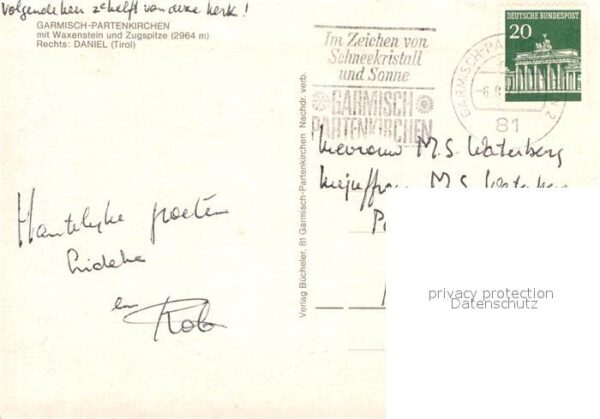 Volgende keer 2e helft van deze kerk!
GARMISCH-PARTENKIRCHEN
mit Waxenstein und Zugspitze (2964 m)
Rechts: DANIEL (Tirol)
Hartelijke groeten
Lideke
en
Rob
Verlag Bücheler, 81 Garmisch-Partenkirchen Nachdr. verb.
Im Zeichen von
Schneekristall
und Sonne
GARMISCH
PARTENKIRCHEN
DEUTSCHE BUNDESPOST
20
GARMISCH-PA
2
81
Mevrouw M.S. Waterberg
Mejuffrouw M.S.
privacy protection
Datenschutz